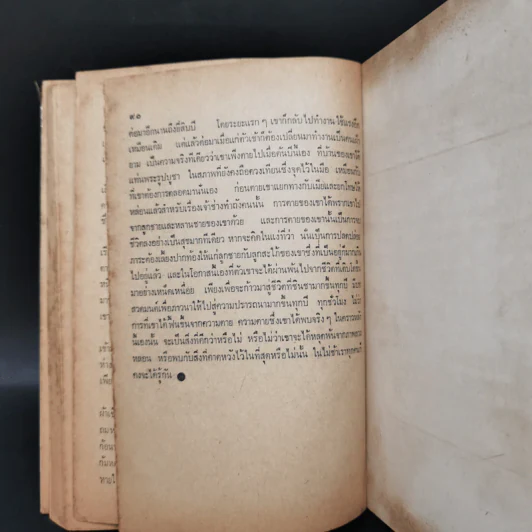 ๙๑
ต่อมาอีกนานถึงยี่สิบปี โดยระยะแรก ๆ เขาก็กลับไปทำงาน
เหมือนเดิม แต่แล้วต่อมาเมื่อแก่ตัวเข้าก็ต้องเปลี่ยนมาทำงานเป็นคนเฝ้า
ยาม เป็นความจริงทีเดียวว่าเขาเพิ่งตายไปเมื่อคืนนี้เอง ที่บ้านของเขาได้
แท่นพระรูปบูชา ในสภาพที่ยังคงถือดวงเทียนซึ่งจุดไว้ในมือ เหมือนกับ
ที่เขาต้องการตลอดมานั่นเอง ก่อนตายเขาแยกทางกับเมียและลูกโดยได้
หล่อนแล้วสำหรับเรื่องเจ้าช่างทำถังคนนั้น การตายของเขาได้พรากเขาไป
จากลูกชายและหลานชายของเขาด้วย และการตายของเขานั้นเป็นการจบ
ชีวิตลงอย่างเป็นสุขมากทีเดียว หากจะคิดในแง่ที่ว่า นั่นเป็นการปลดปล่อย
ภาระต้องเลี้ยงปากท้องให้แก่ลูกชายกับลูกสะใภ้ของเขาซึ่งที่เป็นอยู่ก็มากเกิน
ไปอยู่แล้ว และในโอกาสนี้เองที่ตัวเขาจะได้ผ่านพ้นไปจากชีวิตที่เดิน
มาอย่างเหน็ดเหนื่อย เพียงเพื่อจะก้าวมาสู่ชีวิตที่ชินชามากขึ้นทุกปี
สวดมนต์เพื่อภาวนาให้ไปสู่ความปรารถนามากขึ้นทุกปี ทุกชั่วโมง ไม่ว่า
การที่เขาได้ฟื้นขึ้นจากความตาย ความตายซึ่งเขาได้พบจริง ๆ ในคราว
นี้เองนั้น จะเป็นสิ่งที่ดีกว่าหรือไม่ หรือไม่ว่าเขาจะได้หลุดพ้นจากภาพ
หลอน หรือพบกับสิ่งที่คาดหวังไว้ในที่สุดหรือไม่นั้น ในไม่ช้าเราทุกคนก็
คงจะได้รู้กัน ●